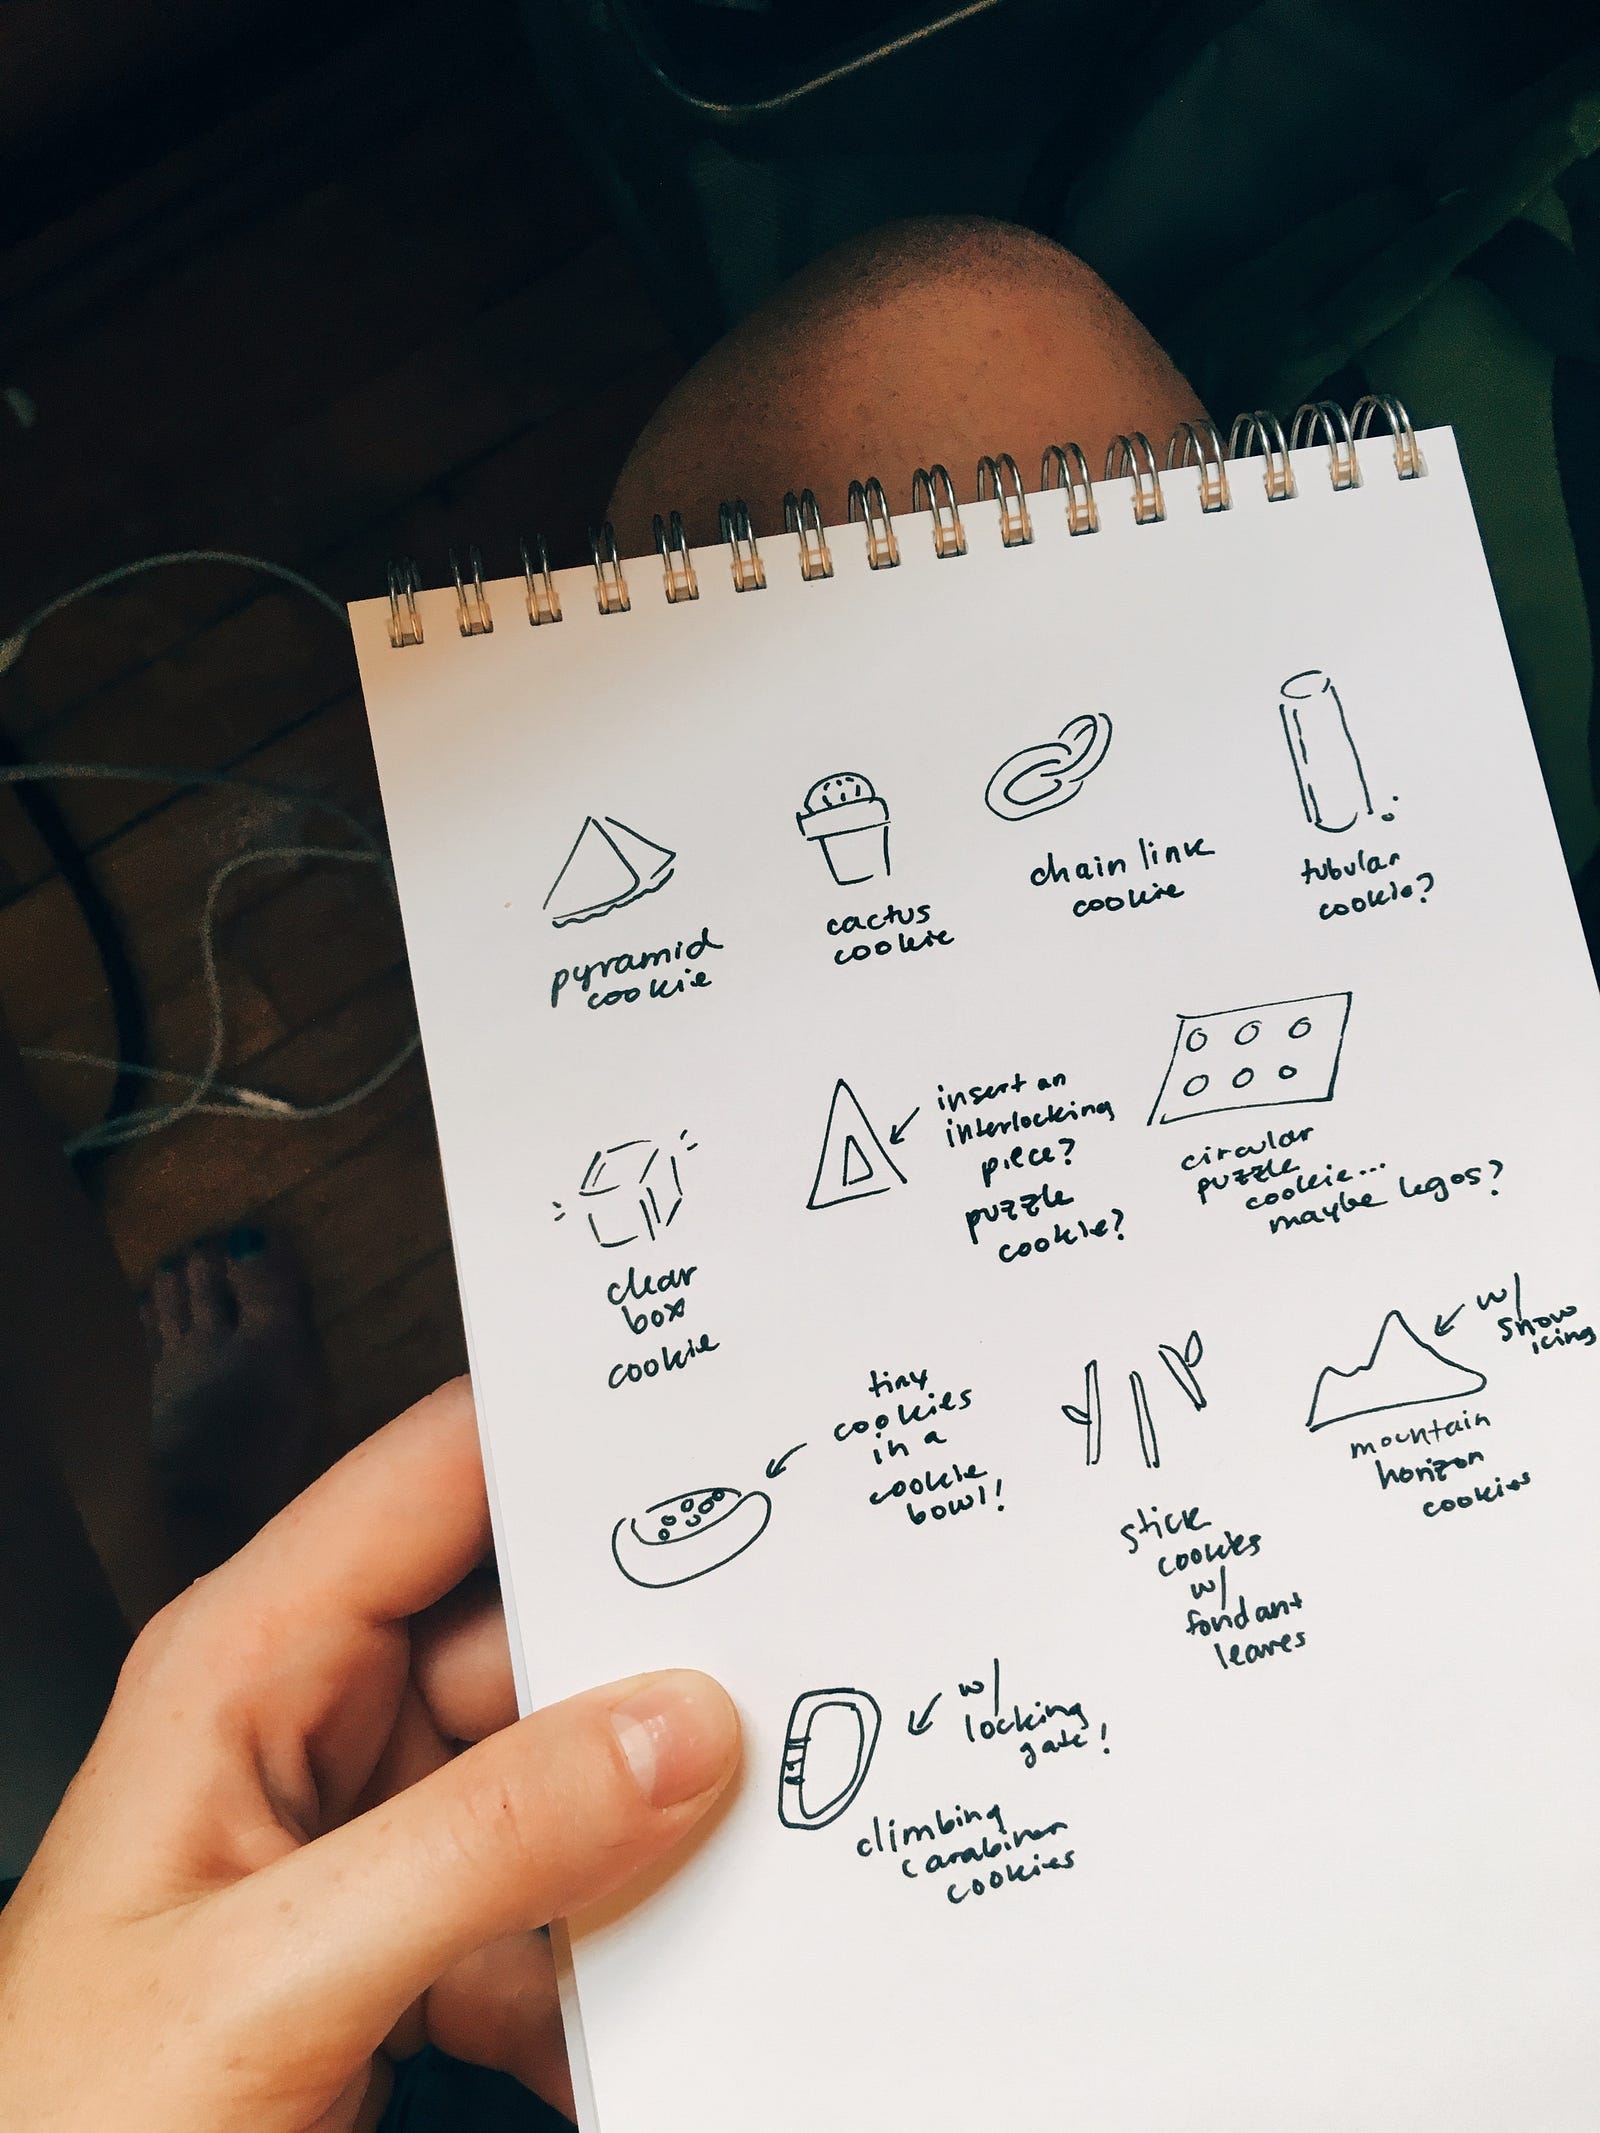 pyramid
cookie
cactus
cookie
chain link
cookie
tubular
cookie?
clear
box
cookie
insert an
interlocking
piece?
puzzle
cookie?
circular
puzzle
cookie...
maybe legos?
tiny
cookies
in a
cookie
bowl!
stick
cookies
w/
fondant
leaves
w/
snow
icing
mountain
horizon
cookies
w/
locking
gate!
climbing
carabiner
cookies